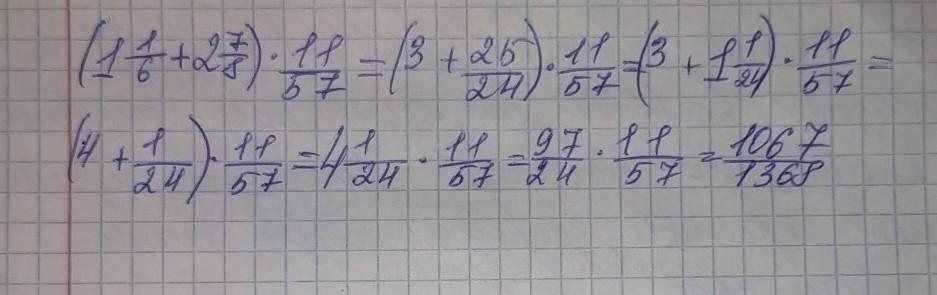 (1 1/6 + 2 7/8) · 11/57 = (3 + 25/24) · 11/57 = (3 + 1 1/24) · 11/57 =
(4 + 1/24) · 11/57 = 4 1/24 · 11/57 = 97/24 · 11/57 = 1067/1368